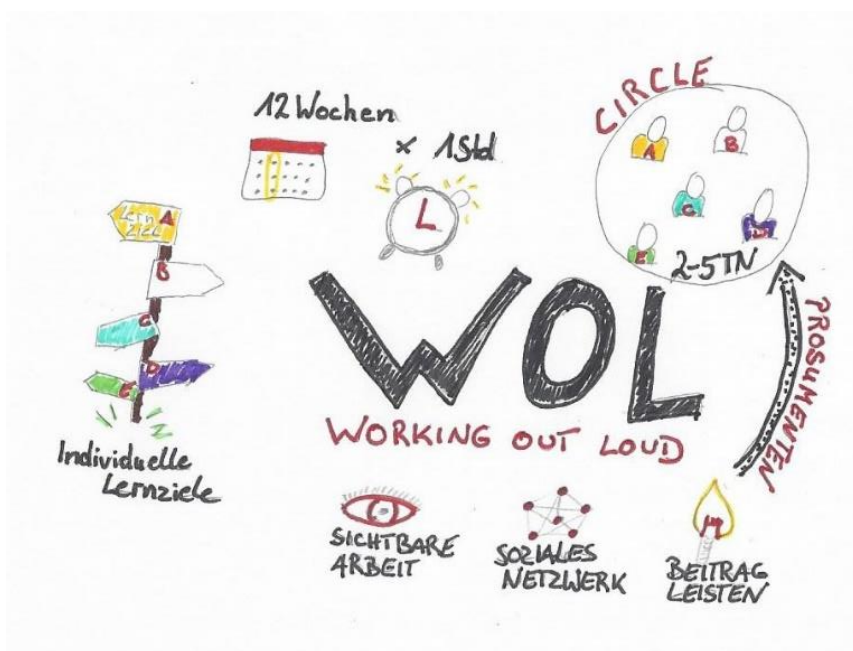 12 Wochen
x 1Std
CIRCLE
A
B
C
D
E
2-5TN
Lern
ziel A
B
C
D
E
Individuelle
Lernziele
L
WOL
WORKING OUT LOUD
PROSUMENTEN
SICHTBARE
ARBEIT
SOZIALES
NETZWERK
BEITRAG
LEISTEN